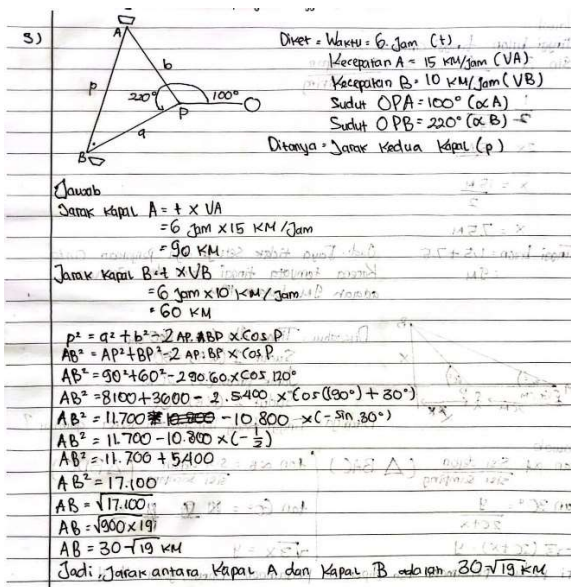 5)
A
b
p
220°
100°
P
O
a
B
Diket = Waktu = 6 Jam (t)
Kecepatan A = 15 KM/Jam (VA)
Kecepatan B = 10 KM/Jam (VB)
Sudut OPA = 100° (αA)
Sudut OPB = 220° (αB)
Ditanya = Jarak Kedua Kapal (p)
Jawab
Jarak Kapal A = t x VA
= 6 Jam x 15 KM/Jam
= 90 KM
Jarak Kapal B = t x VB
= 6 Jam x 10 KM/Jam
= 60 KM
p² = a² + b² - 2 AP. ABP x Cos P
AB² = AP² + BP² - 2 AP. BP x Cos P
AB² = 90² + 60² - 2 90.60 x Cos 120°
AB² = 8100 + 3600 - 2. 5.400 x Cos ((90°) + 30°)
AB² = 11.700 - 10.800 x (- sin 30°)
AB² = 11.700 - 10.800 x (- 1/2)
AB² = 11.700 + 5.400
AB² = 17.100
AB = √17.100
AB = √900 x 19
AB = 30√19 KM
Jadi, Jarak antara Kapal A dan Kapal B adalah 30√19 KM